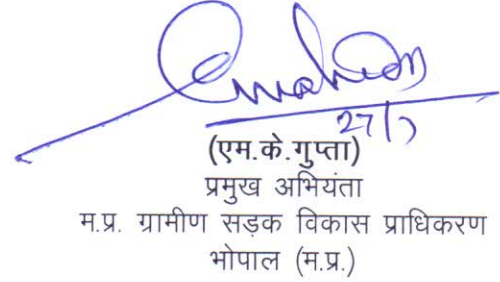 27/7
(एम.के.गुप्ता)
प्रमुख अभियंता
म.प्र. ग्रामीण सड़क विकास प्राधिकरण
भोपाल (म.प्र.)